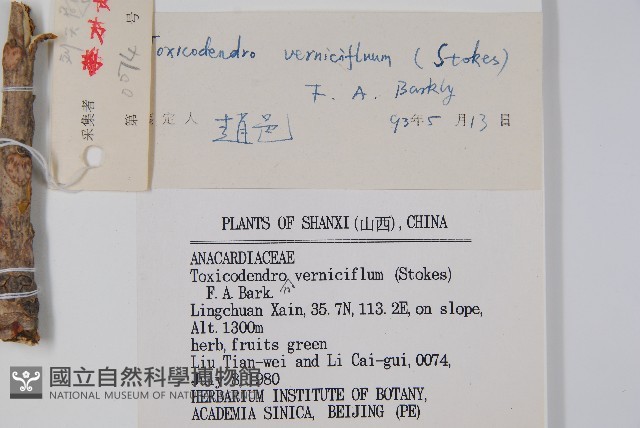 采集者
第 0074 号
Toxicodendro verniciflnum (Stokes)
F. A. Barkly
定人 趙邑 93年5月13日
PLANTS OF SHANXI(山西), CHINA
ANACARDIACEAE
Toxicodendro verniciflum (Stokes)
n
F. A. Bark.
Lingchuan Xain, 35.7N, 113.2E, on slope,
Alt. 1300m
herb, fruits green
Liu Tian-wei and Li Cai-gui, 0074,
July 8, 1980
HERBARIUM INSTITUTE OF BOTANY,
ACADEMIA SINICA, BEIJING (PE)
國立自然科學博物館
NATIONAL MUSEUM OF NATURAL SCIENCE